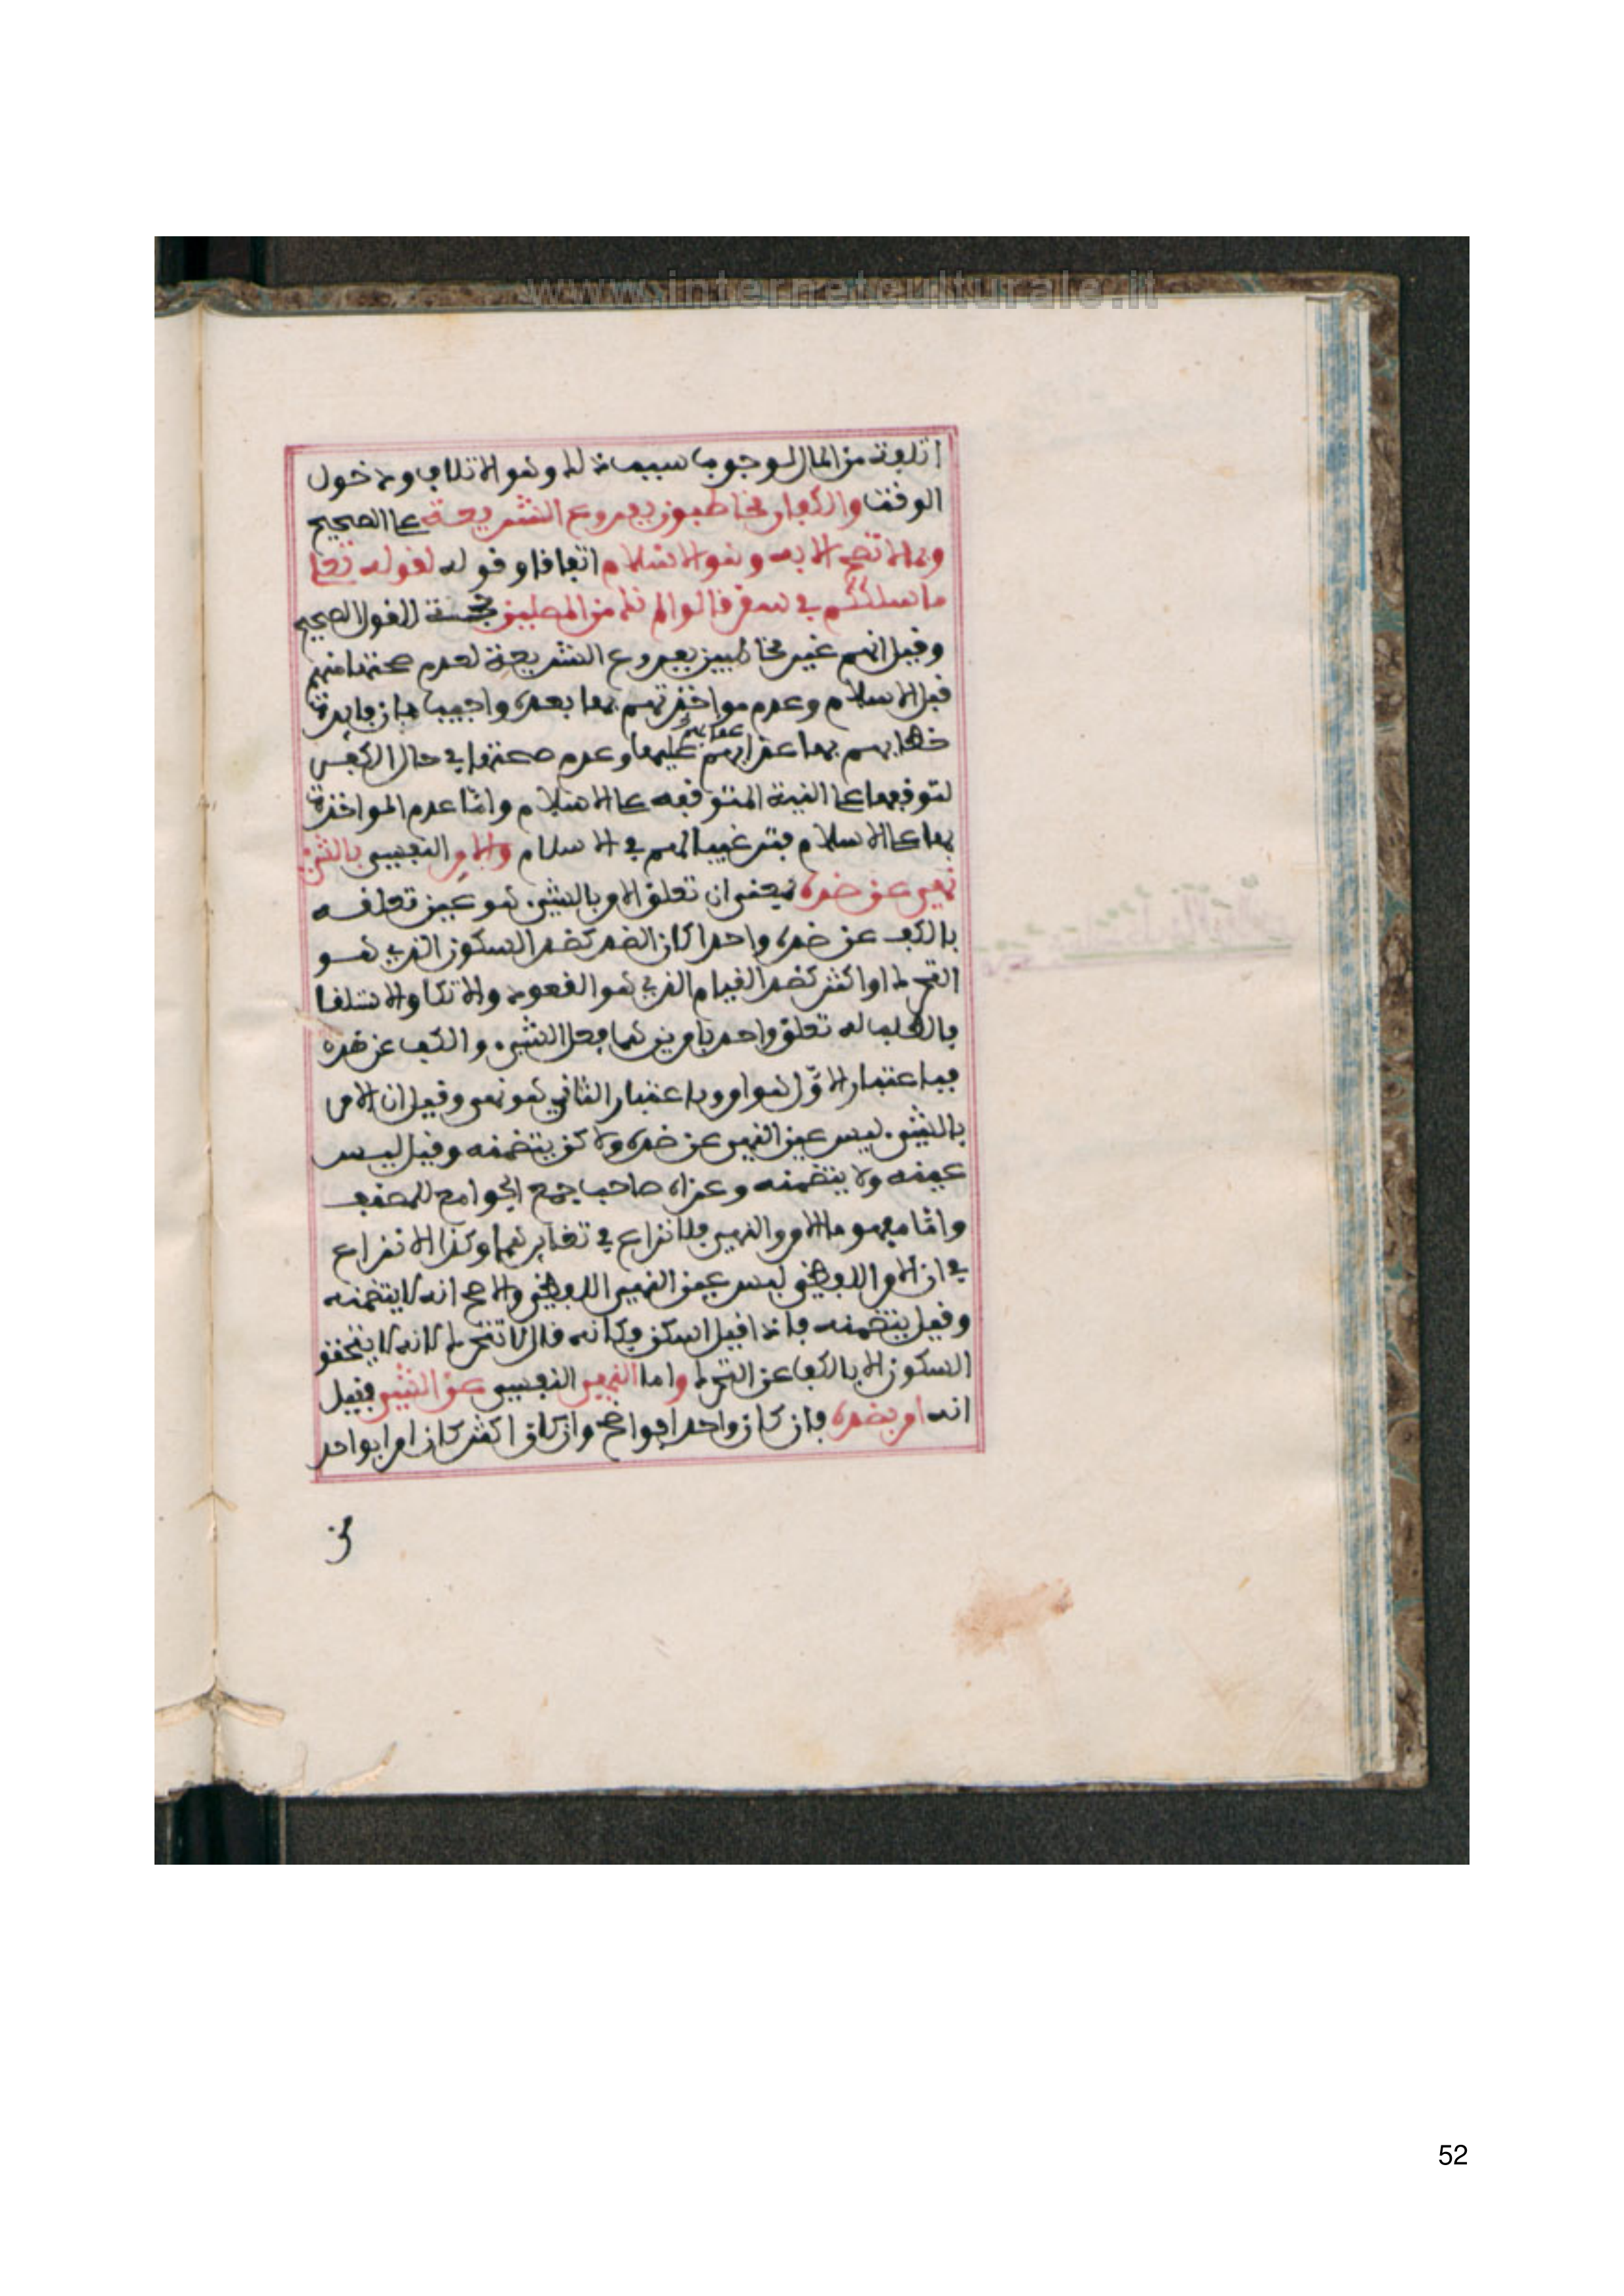 www.internetculturale.it
اتلفه من المال لوجوب سببه له وهو الاتلاف ودخول
الوقت والكفار مخاطبون بفروع الشريعة على الصحيح
وبما لا تصح الا به وهو الاسلام اتفاقا وقوله لقوله تعلى
ما سلككم في سقر قالوا لم نك من المصلين حجة للقول الصحيح
وقيل انهم غير مخاطبين بفروع الشريعة لعدم صحتها منهم
قبل الاسلام وعدم مواخذتهم بها بعده واجيب بان فايدة
خطابهم بها عذابهم عقابهم عليها وعدم صحتها في حال الكفر
لتوقفها على النية المتوقفه على الاسلام واما عدم المواخذة
بها على الاسلام فترغيبا لهم في الاسلام والامر النفسي بالشيء
نهي عن ضده بمعنى ان تعلق الامر بالشيء هو عين تعلقه
بالكف عن ضده واحدا كان الضد كضد السكون الذي هو
التحرك او اكثر كضد القيام الذي هو القعود والاتكا والاستلقا
بالطلب له تعلق واحد بامرين هما فعل الشيء والكف عن ضده
فباعتبار الاوّل هو امر وباعتبار الثاني هو نهي وقيل ان الامر
بالشيء ليس عين النهي عن ضده ولا كن يتضمنه وقيل ليس
عينه ولا يتضمنه وعزاه صاحب جمع الجوامع للمصنف
واما مفهوما الامر والنهي فلا نزاع في تغايرهما وكذا لا نزاع
في ان الامر اللفظي ليس عين النهي اللفظي والاصح انه لا يتضمنه
وقيل يتضمنه فاذا قيل اسكن فكانه قال لا تتحرك لانه لا يتحقق
السكون الا بالكف عن التحرك واما النهي النفسي عن الشيء فقيل
انه امر بضده فان كان واحدا فواضح وان كان اكثر كان امرا بواحد
من
52